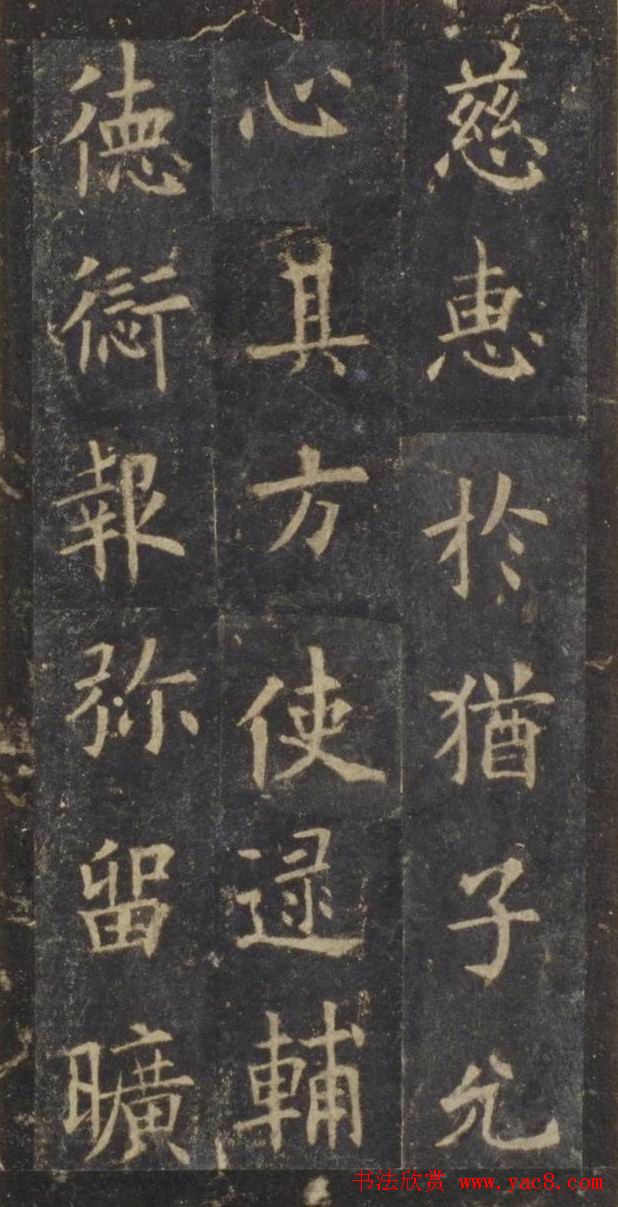 慈恵於猶子允
心其方使逮輔
德愆報弥留曠
书法欣赏 www.yac8.com